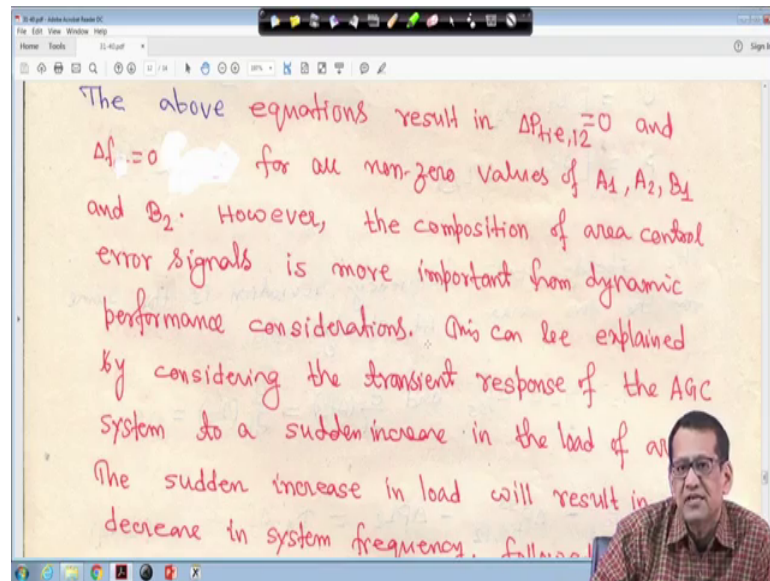 31-40.pdf - Adobe Acrobat Reader DC
File Edit View Window Help
Home Tools 31-40.pdf × Sign I
12 / 14
The above equations result in ΔPtie,12=0 and
Δf =0 for all non-zero values of A1, A2, B1
and B2. However, the composition of area control
error signals is more important from dynamic
performance considerations. This can be explained
by considering the transient response of the AGC
system to a sudden increase in the load of
The sudden increase in load will result in
decrease in system frequency,